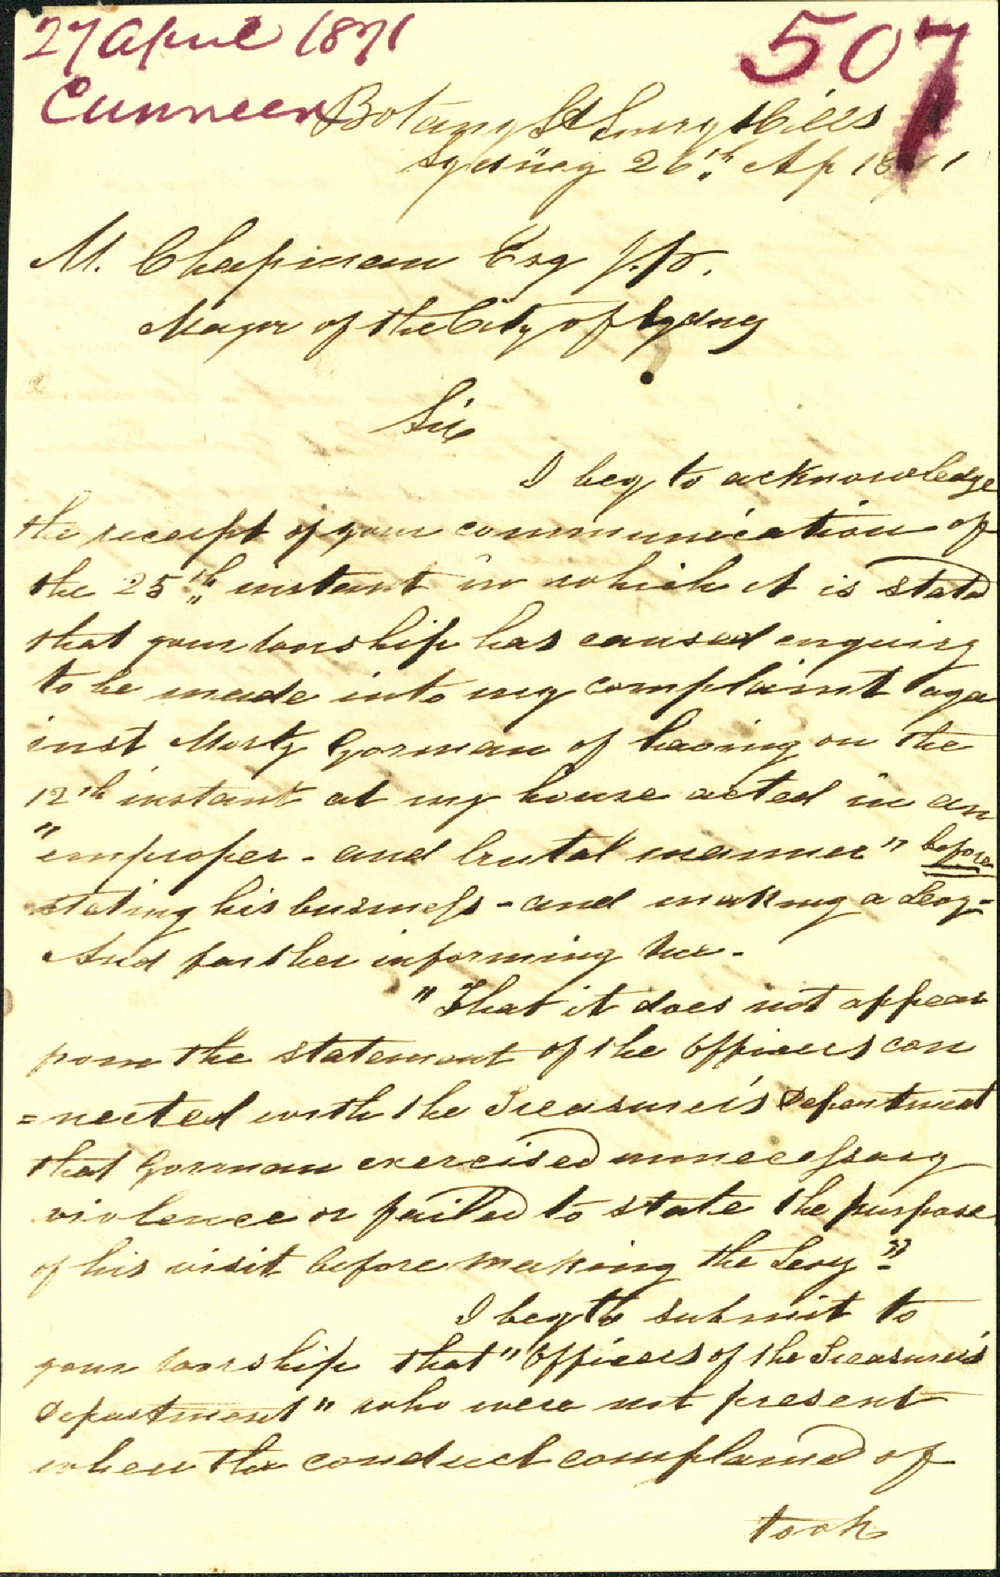 27 April 1871
507
Cunneen
Botany St Surry Hills
Sydney 26th Ap 1871
M. Chapman Esq J.P.
Mayor of the City of Sydney
Sir
I beg to acknowledge
the receipt of your communication of
the 25th instant in which it is stated
that your worship has caused enquiry
to be made into my complaint aga
inst Morty Gorman of having on the
12th instant at my house acted in an
"improper - and brutal manner" before
stating his business - and making a Levy -
And further informing me -
"That it does not appear
from the statement of the Officers con
=nected with the Treasurer's Department
that Gorman exercised unnecessary
violence or failed to state the purpose
of his visit before making the Levy"
I beg to submit to
your worship that "Officers of the Treasurer's
Department" who were not present
when the conduct complained of
took